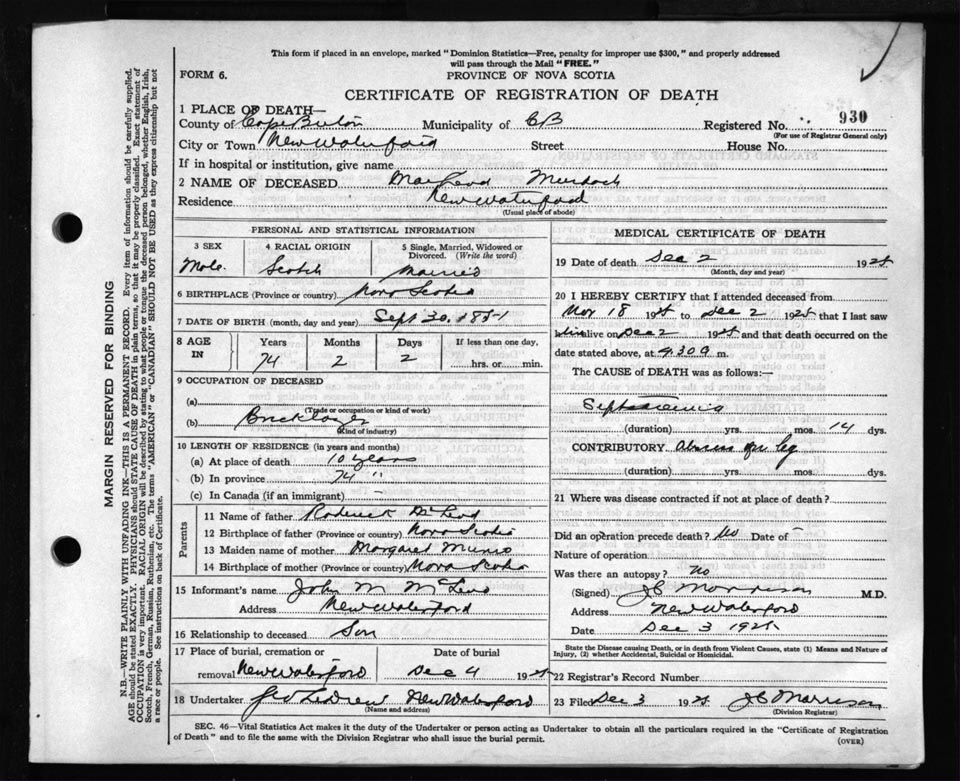 This form if placed in an envelope, marked "Dominion Statistics—Free, penalty for improper use $300," and properly addressed
will pass through the Mail "FREE."
FORM 6.
PROVINCE OF NOVA SCOTIA
CERTIFICATE OF REGISTRATION OF DEATH
1 PLACE OF DEATH—
County of Cape Breton Municipality of CB Registered No. 930
(For use of Registrar General only)
City or Town New Waterford Street House No.
If in hospital or institution, give name
2 NAME OF DECEASED MacLeod Murdoch
Residence New Waterford
(Usual place of abode)
PERSONAL AND STATISTICAL INFORMATION
3 SEX 4 RACIAL ORIGIN 5 Single, Married, Widowed or Divorced. (Write the word)
Male Scotch Married
6 BIRTHPLACE (Province or country) Nova Scotia
7 DATE OF BIRTH (month, day and year) Sept 30, 1851
8 AGE IN Years Months Days If less than one day,
74 2 2 hrs. or min.
9 OCCUPATION OF DECEASED
(a)
(Trade or occupation or kind of work)
(b) Bricklayer
(Kind of industry)
10 LENGTH OF RESIDENCE (in years and months)
(a) At place of death 10 years
(b) In province 74 "
(c) In Canada (if an immigrant) –
Parents
11 Name of father Roderick McLeod
12 Birthplace of father (Province or country) Nova Scotia
13 Maiden name of mother Margaret Munro
14 Birthplace of mother (Province or country) Nova Scotia
15 Informant's name John M McLeod
Address New Waterford
16 Relationship to deceased Son
17 Place of burial, cremation or removal Date of burial
New Waterford Dec 4 1925
18 Undertaker New Waterford
(Name and address)
MEDICAL CERTIFICATE OF DEATH
19 Date of death Dec 2 1925
(Month, day and year)
20 I HEREBY CERTIFY that I attended deceased from
Nov 18 1925 to Dec 2 1925 that I last saw
him alive on Dec 2 1925 and that death occurred on
date stated above, at 9.30 a m.
The CAUSE of DEATH was as follows:—
Septicaemia
(duration) yrs. mos. 14 dys.
CONTRIBUTORY Abscess of leg
(duration) yrs. mos. dys.
21 Where was disease contracted if not at place of death?
Did an operation precede death? No Date of –
Nature of operation
Was there an autopsy? No
(Signed) J C Morrison M.D.
Address New Waterford
Date Dec 3 1925
State the Disease causing Death, or in death from Violent Causes, state (1) Means and Nature of
Injury, (2) whether Accidental, Suicidal or Homicidal.
22 Registrar's Record Number
23 Filed Dec 3 1925 J C Morrison
(Division Registrar)
SEC. 46—Vital Statistics Act makes it the duty of the Undertaker or person acting as Undertaker to obtain all the particulars required in the "Certificate of Registration
of Death" and to file the same with the Division Registrar who shall issue the burial permit.
(OVER)
MARGIN RESERVED FOR BINDING
N.B.—WRITE PLAINLY WITH UNFADING INK—THIS IS A PERMANENT RECORD. Every item of information should be carefully supplied.
AGE should be stated EXACTLY. PHYSICIANS should STATE CAUSE OF DEATH in plain terms, so that it may be properly classified. Exact statement of
OCCUPATION is very important. RACIAL ORIGIN will be described by stating to what people or tongue the deceased person belonged, whether English, Irish,
Scotch, French, German, Russian, Ruthenian, etc. The terms "AMERICAN" or "CANADIAN" SHOULD NOT BE USED as they express citizenship but not
a race or people. See instructions on back of Certificate.